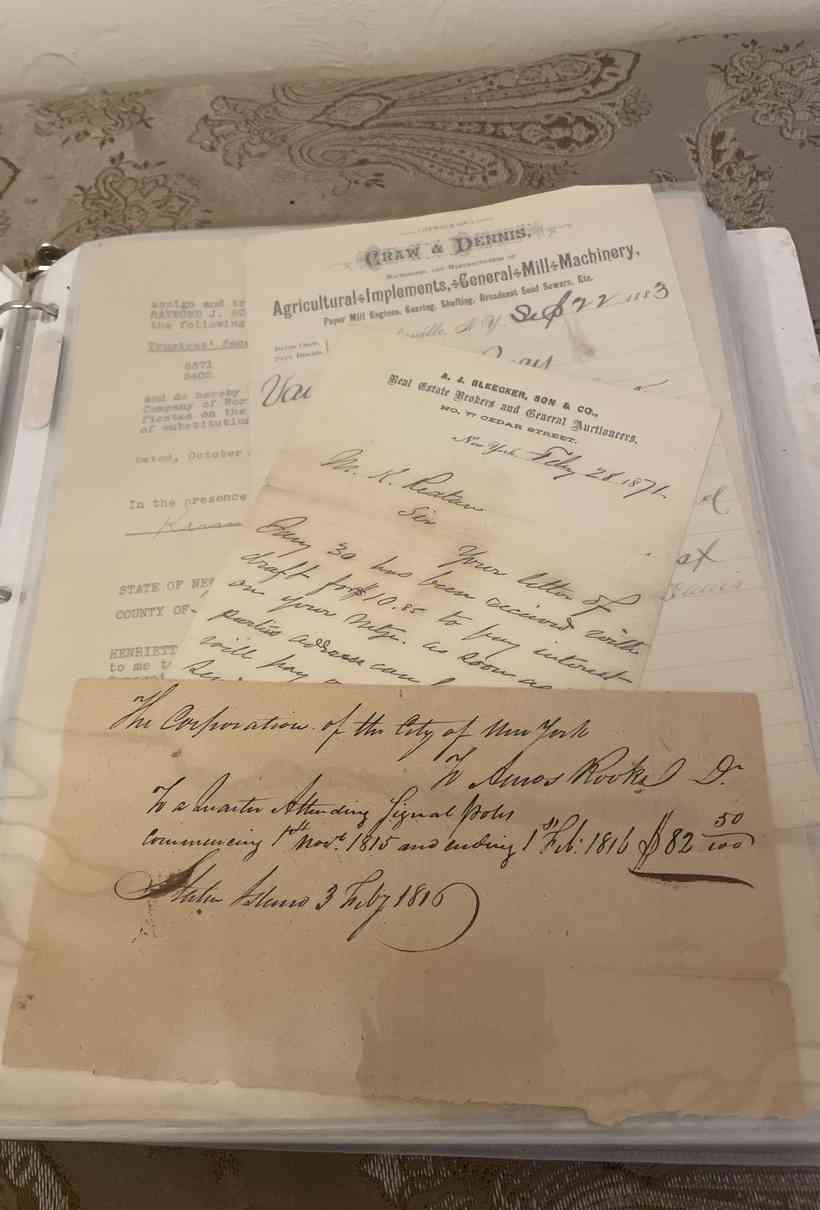 assign and tr
RAYMOND J.
the following
Trustees' Fee
6871
5402
and do hereby
Company of Nor
ficates on the
of substitution
Dated, October
In the presence
STATE OF NE
COUNTY OF
HENRIETT
to me t
CRAW & DENNIS.
Agricultural Implements, General Mill Machinery,
Paper Mill Engines, Gearing, Shafting, Broadcast Seed Sowers, Etc.
N. Y. Sep 22 1883
A. J. BLEECKER, SON & CO.,
Real Estate Brokers and General Auctioneers,
NO. 77 CEDAR STREET.
New York Feby 28 1871
M. K.
Sir
Your letter of
30 has been received with
draft for $10.85 to pay interest
on your Mtge. as soon as
parties address can
will pay
The Corporation of the City of New York
To Amos Rooke Dr
To a Quarter Attending Signal Poles
Commencing 1st Novr 1815 and ending 1st Feb: 1816 $82 50/100
Staten Island 3 Feby 1816